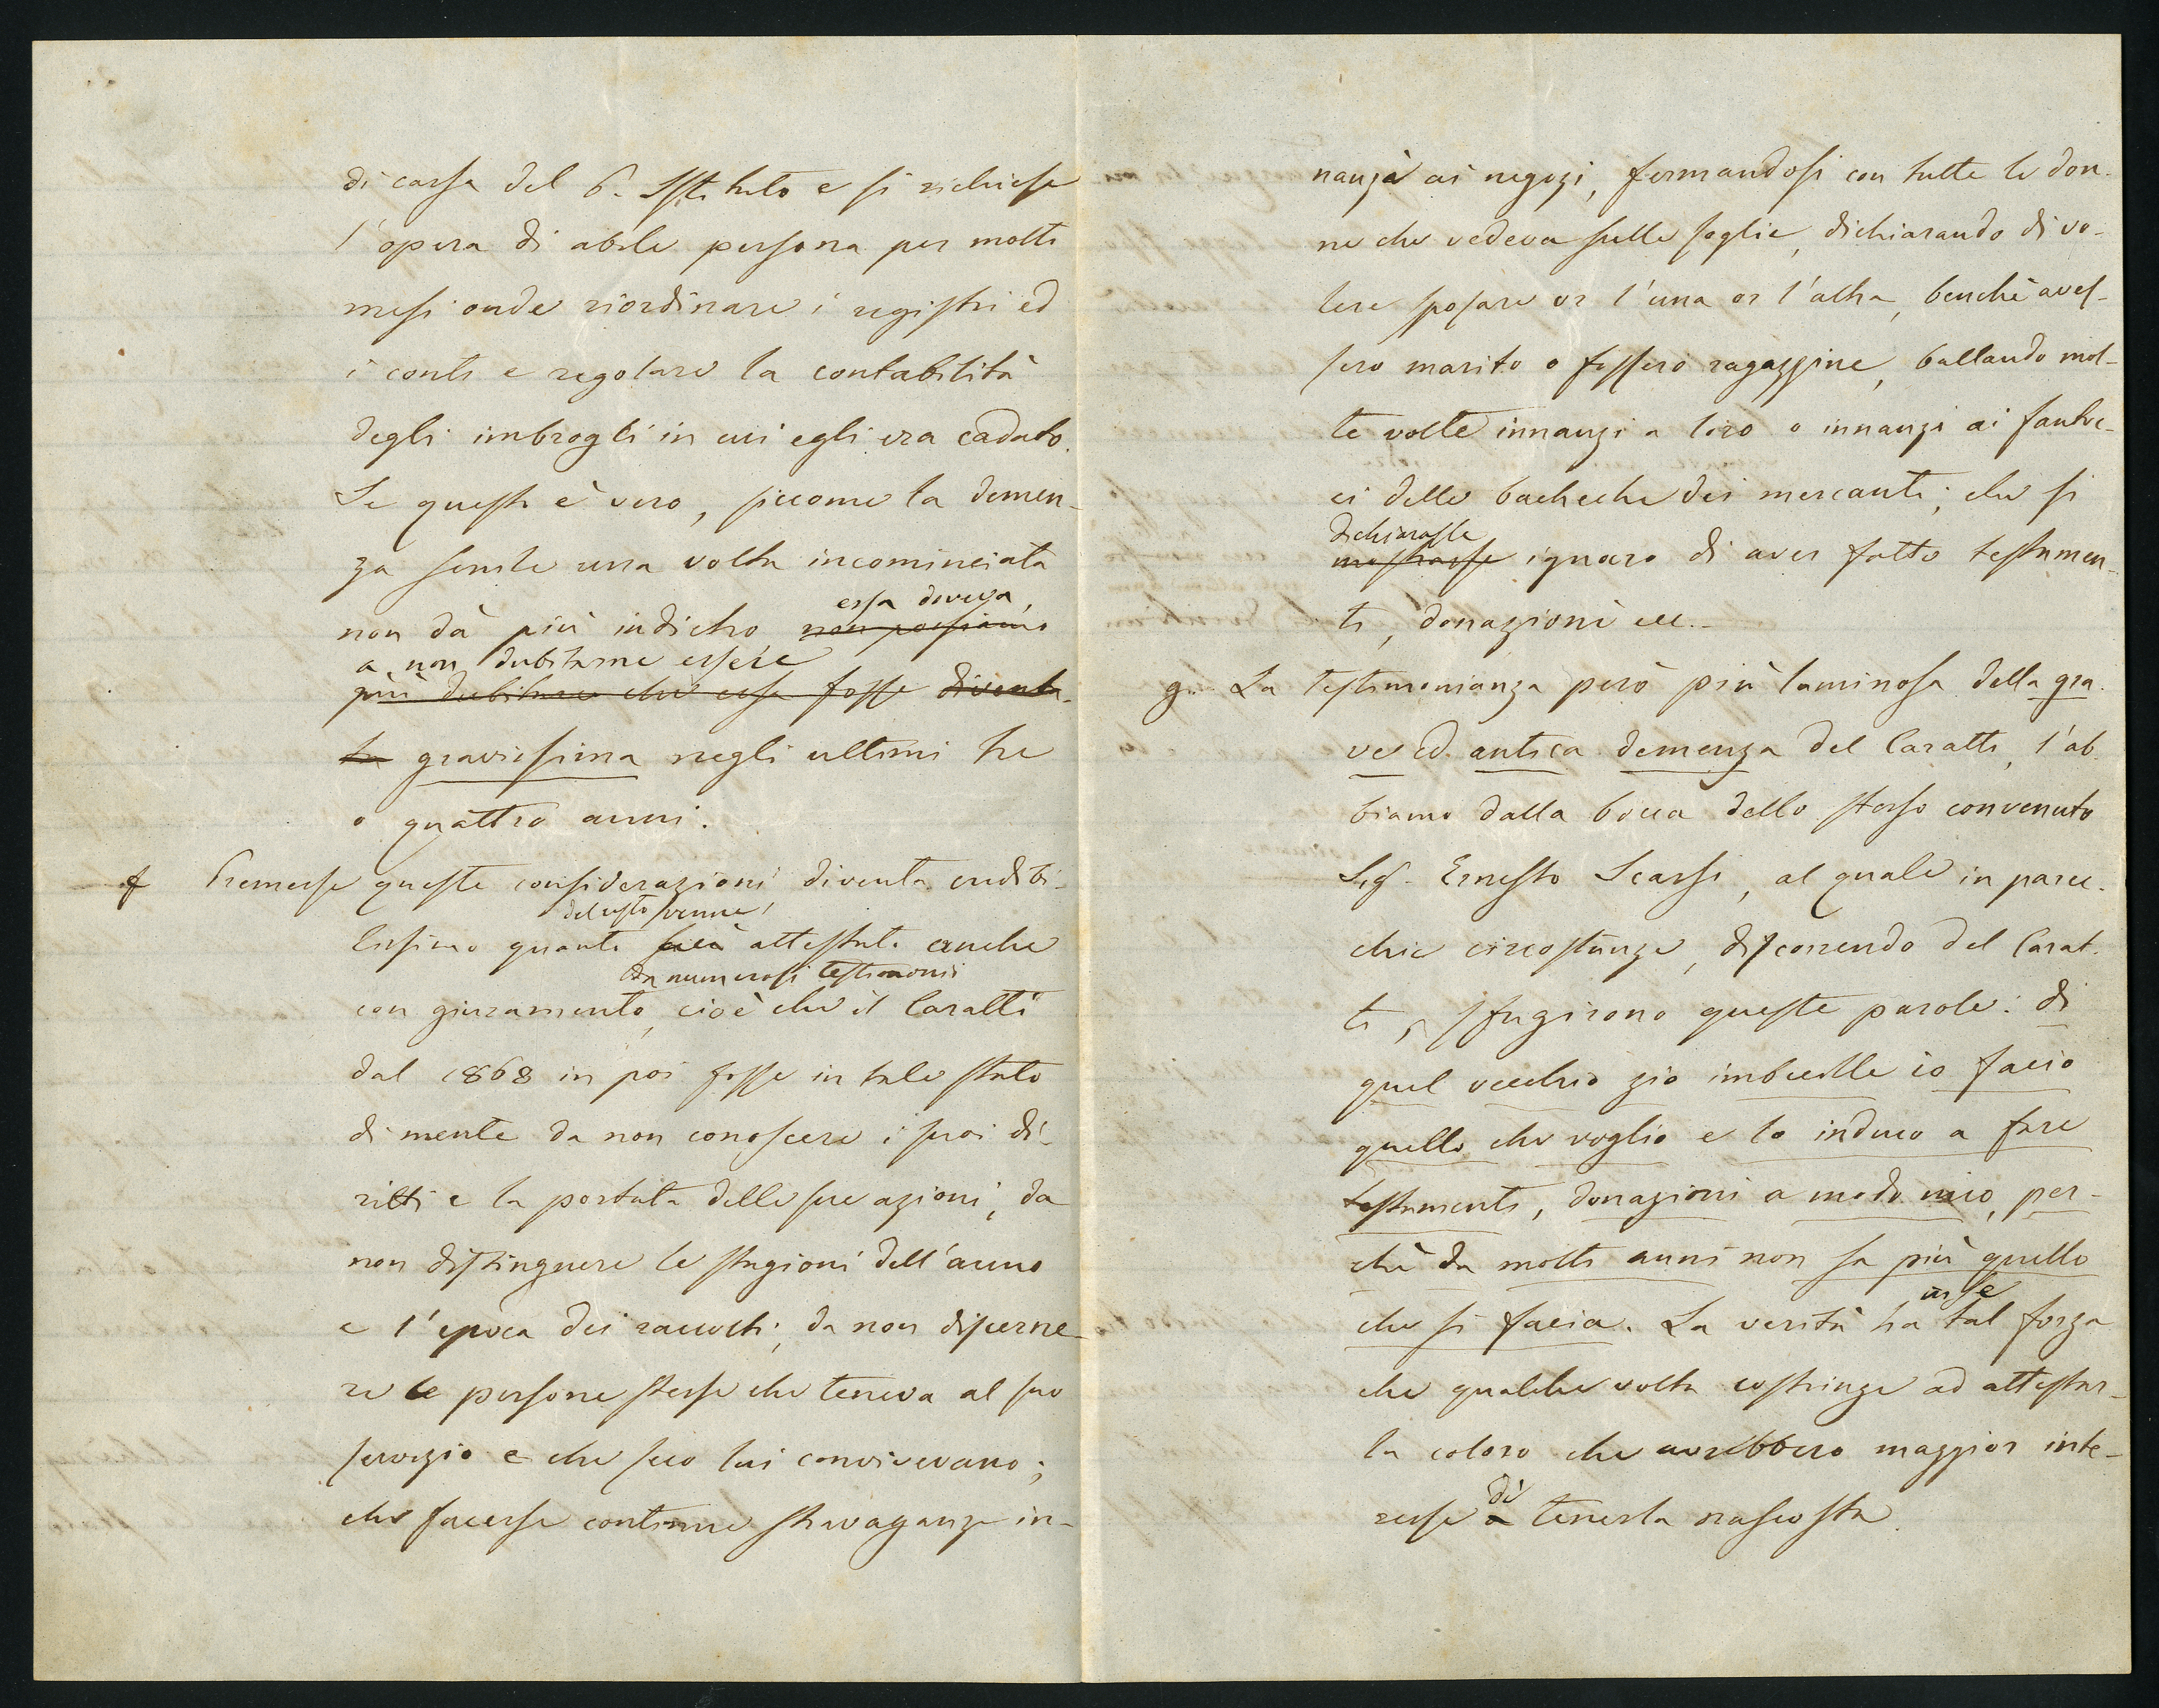 di cassa del b. Istituto e si richiese
l'opera di abile persona per molti
mesi onde riordinare i registri ed
i conti e regolare la contabilità
degli imbrogli in cui egli era caduto.
Se questo è vero, siccome la demen-
za senile una volta incominciata
essa doveva,
non dà più indietro non possiamo
a non dubitarne essere
più dubitare che essa fosse diventa-
ta gravissima negli ultimi tre
o quattro anni.
f Premesse queste considerazioni diventa credibi-
del resto venne
lissimo quanto attestato anche
da numerosi testimonii
con giuramento, cioè che il Caratti
dal 1868 in poi fosse in tale stato
di mente da non conoscere i suoi di-
ritti e la portata delle sue azioni, da
non distinguere le stagioni dell'anno
e l'epoca dei raccolti, da non discerne-
re le persone stesse che teneva al suo
servizio e che seco lui convivevano;
che facesse continue stravaganze in-
nanzi ai negozi, fermandosi con tutte le don-
ne che vedeva sulle soglie, dichiarando di vo-
lere sposare or l'una or l'altra, benchè aves-
sero marito o fossero ragazzine, ballando mol-
te volte innanzi a loro o innanzi ai fantoc-
ci delle bacheche dei mercanti; che si
dichiarasse
mostrasse ignaro di aver fatto testamen-
ti, donazioni ecc.-
g. La testimonianza però più luminosa della gra-
ve ed antica demenza del Caratti, l'ab-
biamo dalla bocca dello stesso convenuto
Sig. Ernesto Scarsi, al quale in parec-
chie circostanze, discorrendo del Carat-
ti, sfugirono queste parole: di
quel vecchio zio imbecille io faccio
quello che voglio e lo induco a fare
testamenti, donazioni a modo mio, per-
chè da molti anni non sa più quello
che si faccia. La verità ha tal forza
in se
che qualche volta costringe ad attestar-
la coloro che avrebbero maggior inte-
di
resse a tenerla nascosta.